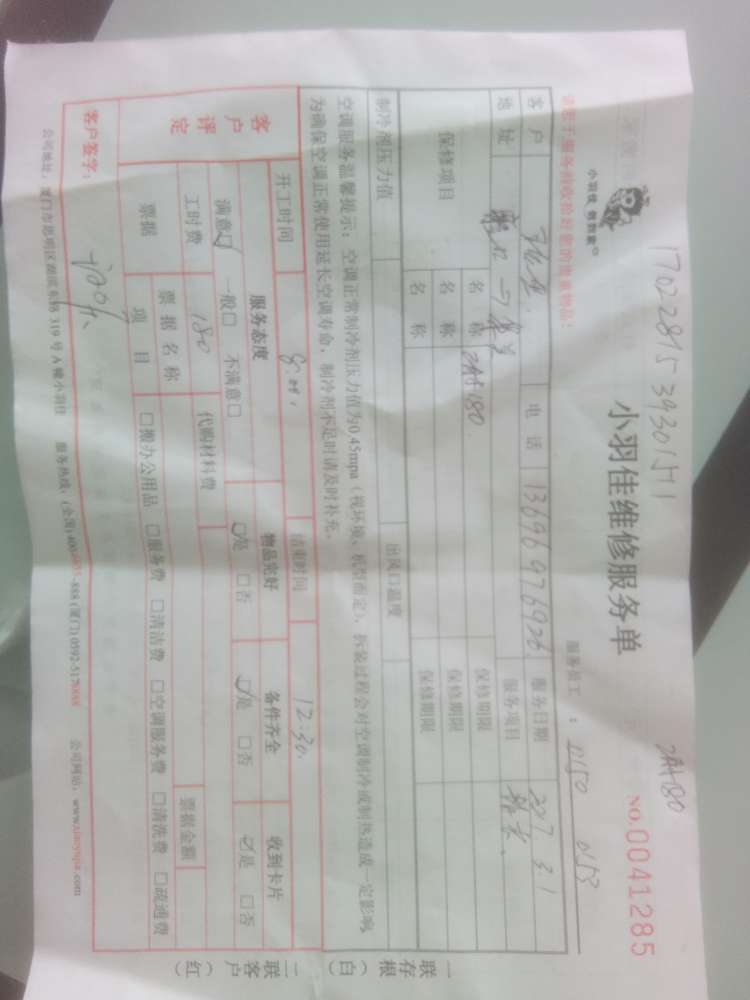 17022815 39301511
2AH180
小羽佳 做到家
小羽佳维修服务单
NO.0041285
服务员工：
0153
客户
电话
13696976926
服务日期
2017.3.1
地址
服务项目
保修项目
名称
2AH180
保修期限
名称
保修期限
名称
保修期限
制冷剂压力值
出风口温度
空调服务温馨提示：空调正常制冷剂压力值为0.45mpa（视环境、机型而定），拆装过程会对空调制冷或制热造成一定影响
为确保空调正常使用延长空调寿命，制冷剂不足时请及时补充。
开工时间
结束时间
12:30
客户评定
服务态度
物品完好
备件齐全
收到卡片
满意☑ 一般□ 不满意□
☑是 □否
☑是 □否
☑是 □否
工时费
180
代购材料费
票据金额
票据
票据名称
项目
□搬办公用品 □服务费 □清洁费 □空调服务费 □清洗费 □疏通费
客户签字：
公司地址：厦门市思明区湖滨东路319号A幢小羽佳
服务热线：(全国)
(厦门)
公司网站：
一联存根（白）
二联客户（红）